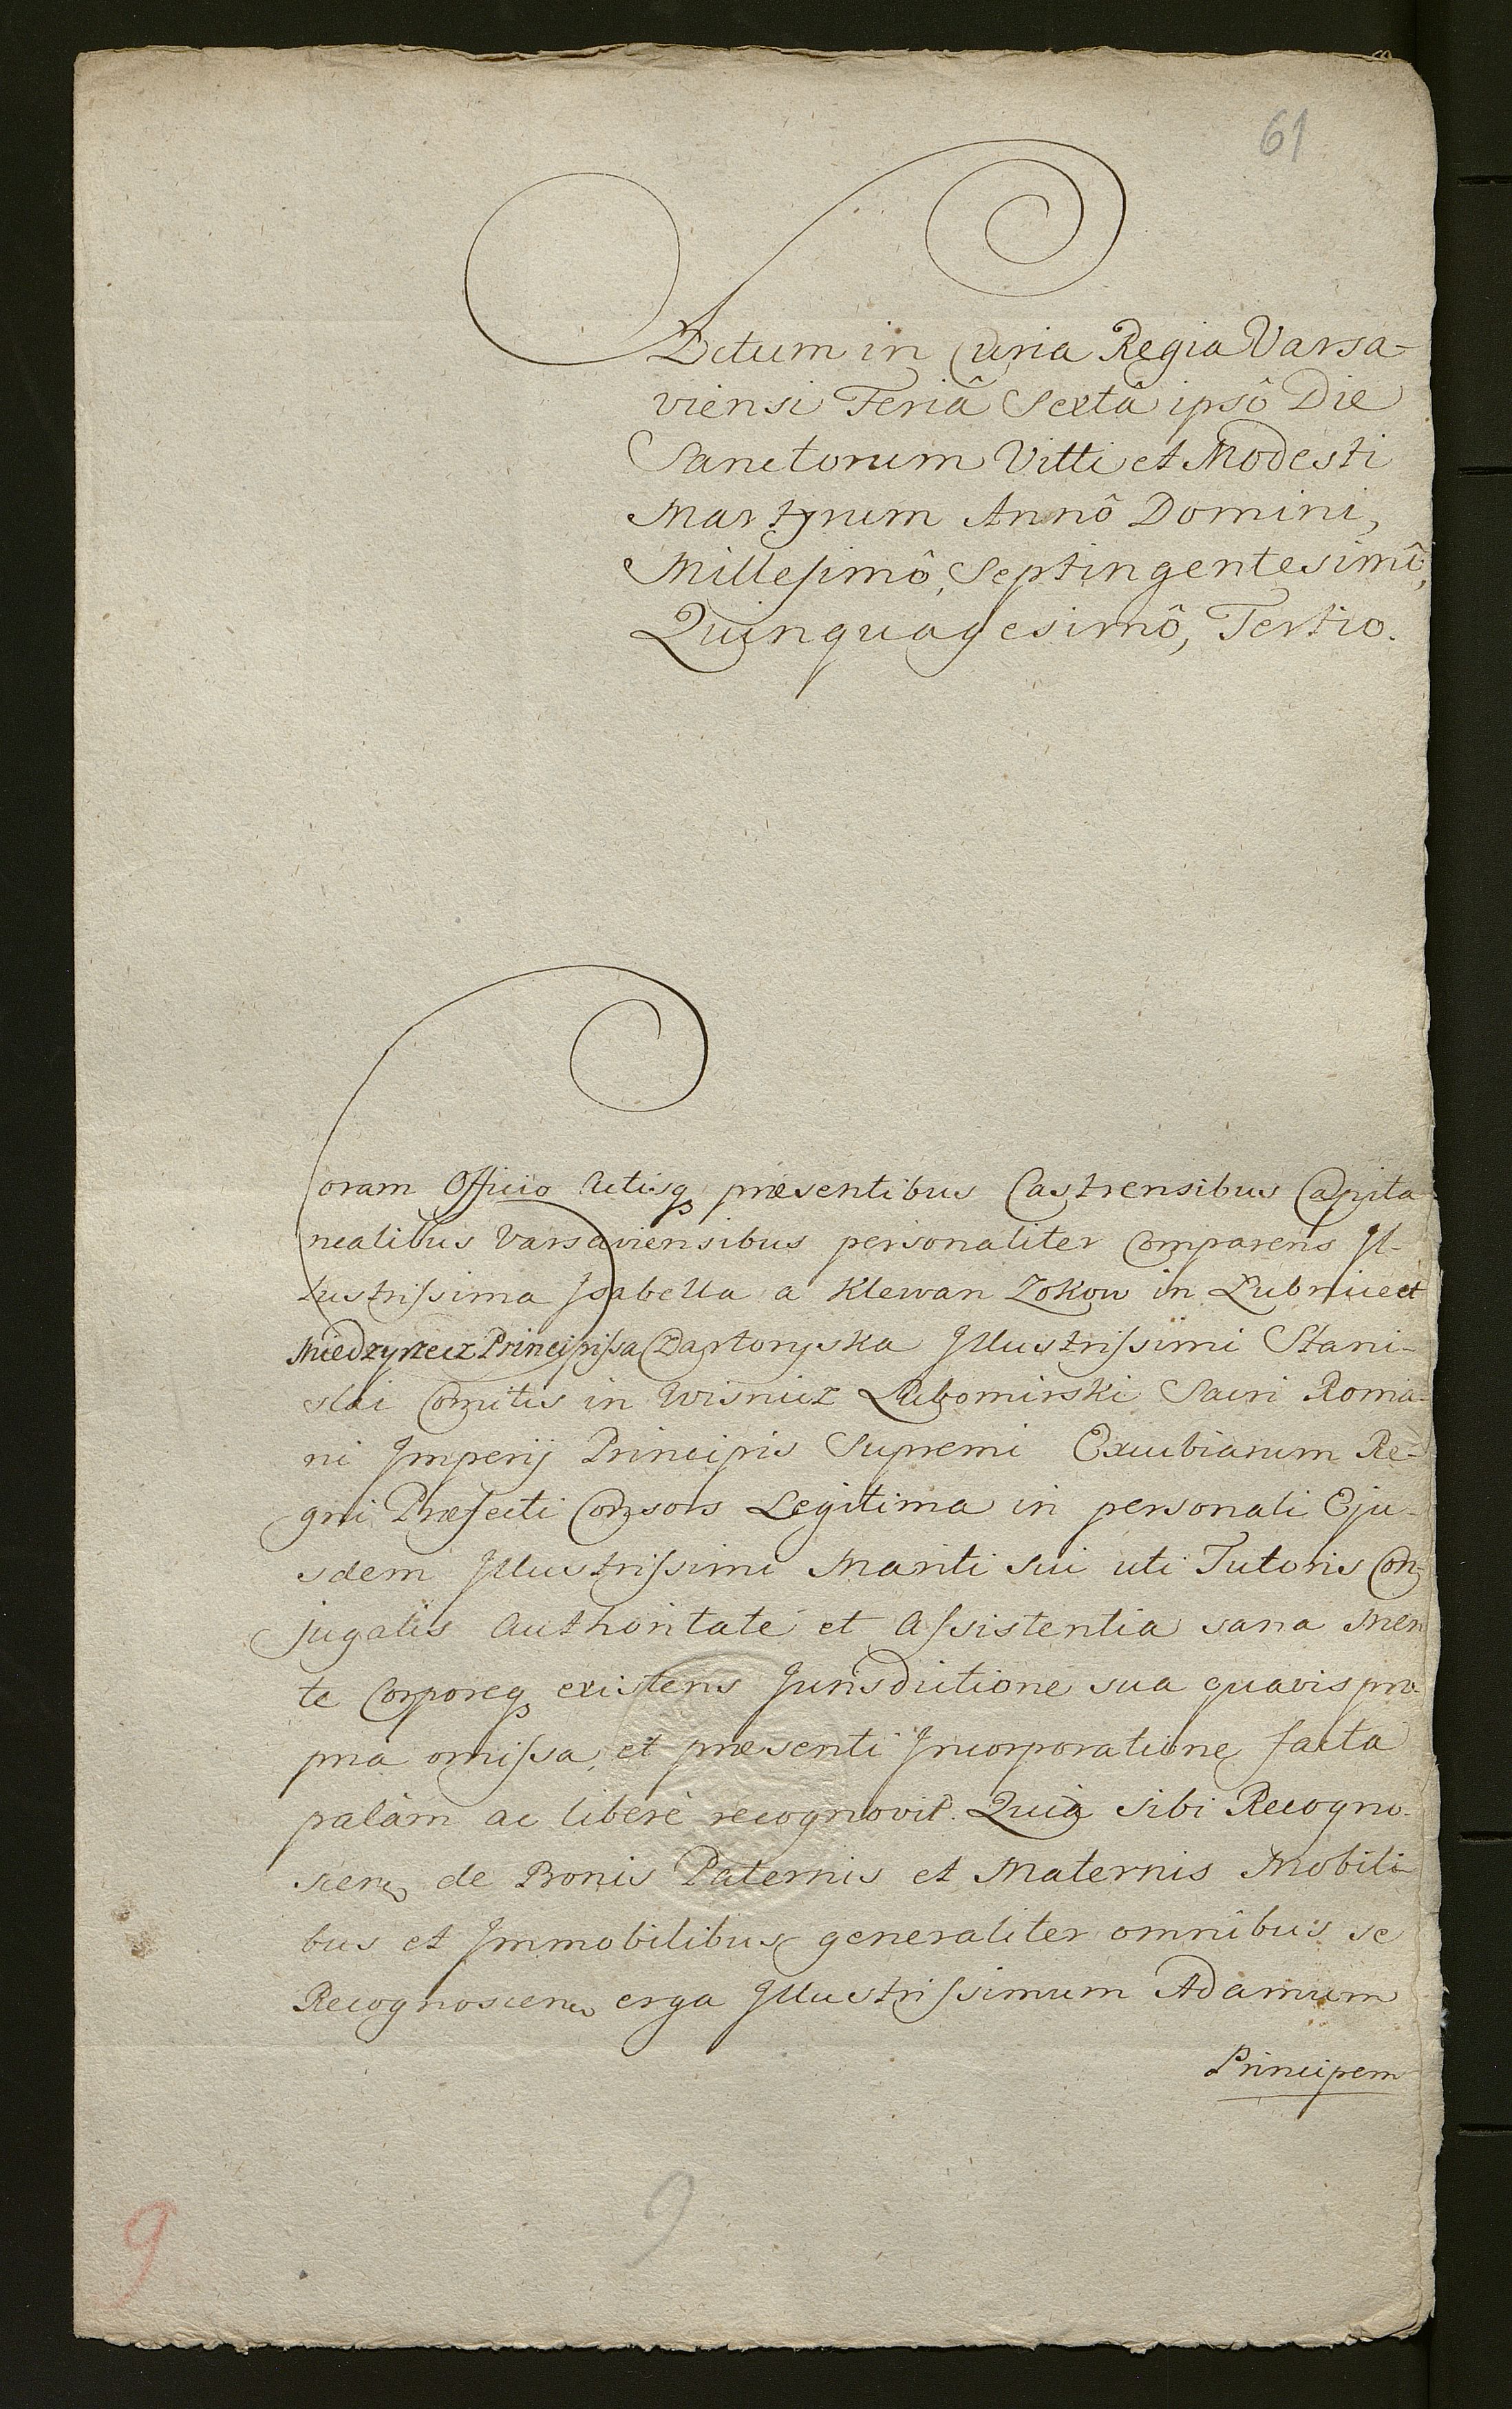 61
Actum in Curia Regia Varsa-
viensi Feriâ Sextâ ipsô Die
Sanctorum Vitti et Modesti
Martyrum Annô Domini,
Millesimô, Septingentesimô,
Quinquagesimô, Tertio.
Coram Officio Actisq́ꝫ præsentibus Castrensibus Capita
nealibus Varsaviensibus personaliter Comparens Il-
lustrissima Isabella a Klewan Zokow in Lubnice et
Miedzyrzecz Principissa Czartoryska Illustrissimi Stani-
slai Comitis in Wisnicz Lubomirski Sacri Roma-
ni Imperij Principis Supremi Excubiarum Re-
gni Præfecti Consors Legitima in personali Eju-
sdem Illustrissimi Mariti sui uti Tutoris Con-
jugalis Authoritate et Assistentia sana Men
te Corporeqꝫ existens Jurisdictione sua quavis pro-
pria omissa, et præsenti Incorporatione facta
palàm ac liberè recognovit. Quia sibi Recogno-
scens de Bonis Paternis et Maternis Mobili-
bus et Immobilibus generaliter omnibus se
Recognoscens erga Illustrissimum Adamum
Principem
9
9